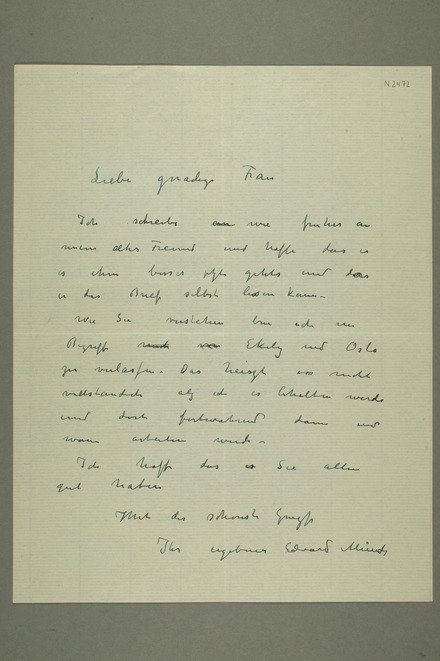 N 2472
Liebe gnadige Frau
Ich schreibe wie fruher an
mein alter Freund und hoffe dass
es ihm besser geht und das
er das Brief selbst lesen kann –
Wie Sie verstehen bin ich im
Begriff Ekely und Oslo
zu verlassen – Das heisst nicht
vollstandich als ich es behalten werde
und doch fortwahrend dann und
wann arbeiten werde –
Ich hoffe das Sie alle
gut haben
Mit des schonste
Ihr ergebener Edvard Munch